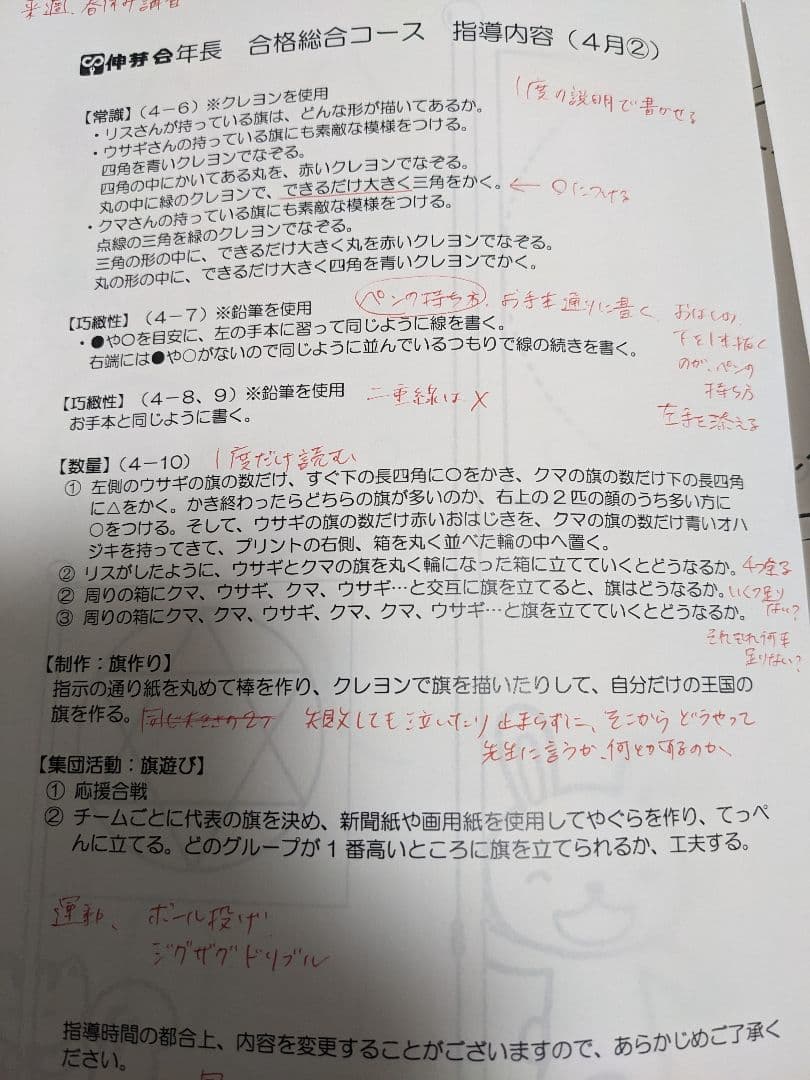 来週、春休み調査
伸芽会年長 合格総合コース 指導内容（４月②）
1度の説明で書かせる
【常識】（４－６）※クレヨンを使用
・リスさんが持っている旗は、どんな形が描いてあるか。
・ウサギさんの持っている旗にも素敵な模様をつける。
四角を青いクレヨンでなぞる。
四角の中にかいてある丸を、赤いクレヨンでなぞる。
丸の中に緑のクレヨンで、できるだけ大きく三角をかく。← ○につける
・クマさんの持っている旗にも素敵な模様をつける。
点線の三角を緑のクレヨンでなぞる。
三角の形の中に、できるだけ大きく丸を赤いクレヨンでなぞる。
丸の形の中に、できるだけ大きく四角を青いクレヨンでかく。
ペンの持ち方、お手本通りに書く、
【巧緻性】（４－７）※鉛筆を使用
・●や○を目安に、左の手本に習って同じように線を書く。
右端には●や○がないので同じように並んでいるつもりで線の続きを書く。
おはしの
下を1本抜く
のが、ペンの
持ち方
左手を添える
【巧緻性】（４－８、９）※鉛筆を使用 二重線は×
お手本と同じように書く。
【数量】（４－１０） 1度だけ読む
① 左側のウサギの旗の数だけ、すぐ下の長四角に○をかき、クマの旗の数だけ下の長四角
に△をかく。かき終わったらどちらの旗が多いのか、右上の２匹の顔のうち多い方に
○をつける。そして、ウサギの旗の数だけ赤いおはじきを、クマの旗の数だけ青いオハ
ジキを持ってきて、プリントの右側、箱を丸く並べた輪の中へ置く。
② リスがしたように、ウサギとクマの旗を丸く輪になった箱に立てていくとどうなるか。4つ余る
② 周りの箱にクマ、ウサギ、クマ、ウサギ…と交互に旗を立てると、旗はどうなるか。いくつ足りない？
③ 周りの箱にクマ、クマ、ウサギ、クマ、クマ、ウサギ…と旗を立てていくとどうなるか。
それぞれ何本
足りない？
【制作：旗作り】
指示の通り紙を丸めて棒を作り、クレヨンで旗を描いたりして、自分だけの王国の
旗を作る。 失敗しても泣いたり止まらずに、そこからどうやって
先生に言うか、何とかするのか
【集団活動：旗遊び】
① 応援合戦
② チームごとに代表の旗を決め、新聞紙や画用紙を使用してやぐらを作り、てっぺ
んに立てる。どのグループが１番高いところに旗を立てられるか、工夫する。
運動、ボール投げ
ジグザグドリブル
指導時間の都合上、内容を変更することがございますので、あらかじめご了承く
ださい。